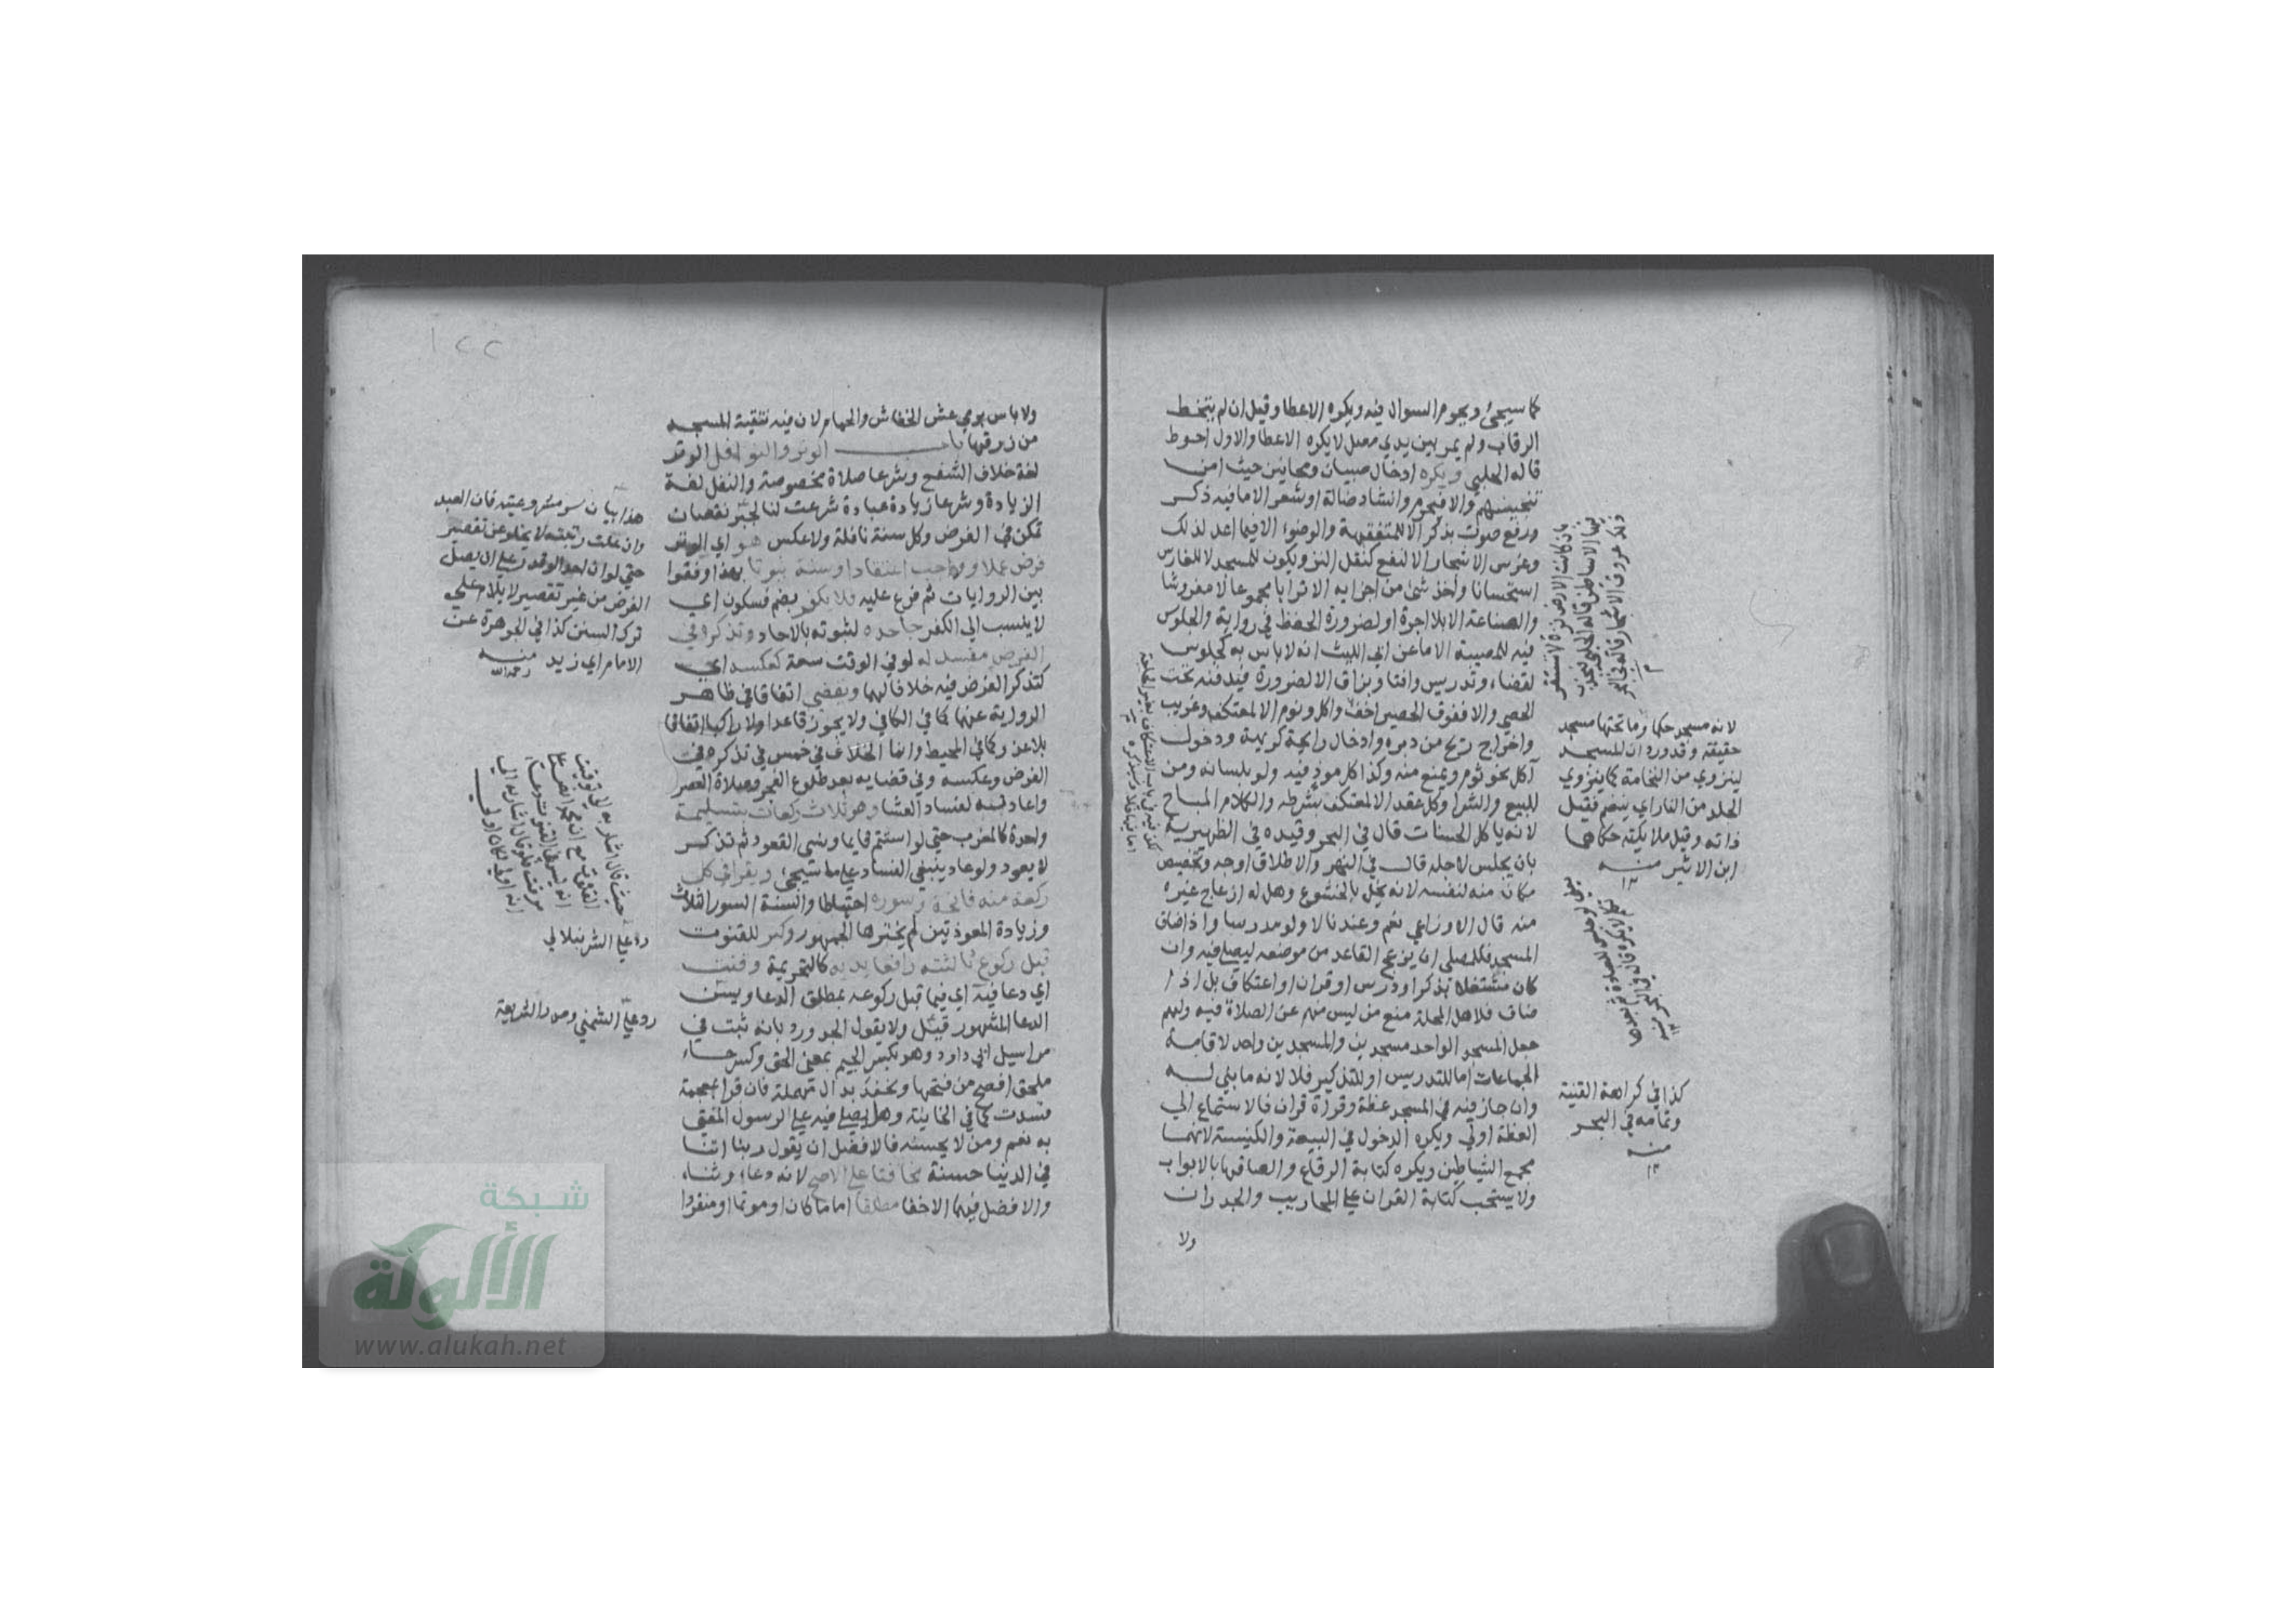 كما سيجئ ويحرم السوال فيه ويكره الاعطا وقيل ان لم يتخط
الرقاب ولم يمر بين يدي مصل لا يكره الاعطا والاول احوط
قاله الحلبي ويكره ادخال صبيان ومجانين حيث امن
تنجيسهم والا فيحرم وانشاد ضالة او شعر الا ما فيه ذكر
ورفع صوت بذكر الا للمتفقهة والوضوء الا فيما اعد لذلك
وغرس الاشجار الا لنفع كتقل النز ويكون للمسجد لا للغارس
استحسانا واخذ شئ من اجزايه الا ترابا مجموعا لا مفروشا
والصناعة الا بلا اجرة او لضرورة الحفظ في رواية والجلوس
فيه للمصيبة الا ما عن ابي الليث انه لا باس به كجلوس
لقضاء وتدريس وافتا وبزاق الا لضرورة فيدفنه تحت
الحصي والا ففوق الحصير اخف واكل ونوم الا لمعتكف وغريب
واخراج ريح من دبره وادخال رايحة كريهة ودخول
آكل نحو ثوم ويمنع منه وكذا كل موذ فيه ولو بلسانه ومن
للبيع والشرا وكل عقد الا لمعتكف بشرطه والكلام المباح
لانه ياكل الحسنات قال في البحر وقيده في الظهيرية
بان يجلس لاجله قال في النهر والاطلاق اوجه وتخصيص
مكان منه لنفسه لانه يخل بالخشوع وهل له ازعاج غيره
منه قال الاوزاعي نعم وعندنا لا ولو مدرسا واذا ضاق
المسجد فللمصلي ان يزعج القاعد من موضعه ليصلي فيه وان
كان مشتغلا بذكر او درس او قران او اعتكاف بل اذا
ضاق فلاهل المحلة منع من ليس منهم عن الصلاة فيه ولهم
جعل المسجد الواحد مسجدين والمسجدين واحد لاقامة
الجماعات اما للتدريس او للتذكير فلا لانه ما بني له
وان جاز فيه في المسجد عظة وقراة قران فالاستماع الي
العظة اولي ويكره الدخول في البيعة والكنيسة لانهما
مجمع الشياطين ويكره كتابة الرقاع والصاقها بالابواب
ولا يستحب كتابة القران علي المحاريب والجدران
ولا
بان كانت الارض نزة لا تستقر
فيها الاساطين قاله الحلبي
لانه مسجد حكما وما تحتها مسجد
حقيقة وقد ورد ان المسجد
لينزوي من النخامة كما ينزوي
الجلد من النار اي ينضم فقيل
ذاته وقيل ملايكته حكاها
ابن الاثير منه
١٢
كذا في كراهة القنية
وتمامه في البحر
منه
١٢
١٢٢
ولا باس برمي عش الخفاش والحمام لان فيه تنقية المسجد
من زرقها باب الوتر والنوافل الوتر
لغة خلاف الشفع وشرعا صلاة مخصوصة والنفل لغة
الزيادة وشرعا زيادة عبادة شرعت لنا لجبر نقصان
تمكن في الفرض وكل سنة نافلة ولا عكس هو اي الوتر
فرض عملا وواجب اعتقادا وسنة ثبوتا بهذا وفقوا
بين الروايات ثم فرع عليه فلا يكفر بضم فسكون اي
لا ينسب الي الكفر جاحده لثبوته بالاحاد وتذكره في
الفرض مفسد له لو في الوقت سعة كعكسه اي
كتذكر الفرض فيه خلافا لهما ويقضي اتفاقا في ظاهر
الرواية عنهما كما في الكافي ولا يجوز قاعدا ولا راكبا اتفاقا
بلا عذر كما في المحيط وانما الخلاف في خمس في تذكره في
الفرض وعكسه وفي قضايه بعد طلوع الفجر وصلاة العصر
واعادته لفساد العشا وهو ثلاث ركعات بتسليمة
واحدة كالمغرب حتي لو استتم قايما ونسي القعود ثم تذكر
لا يعود ولو عاد ينبغي الفساد علي ما سيجئ ويقرا في كل
ركعة منه فاتحة وسورة احتياطا والسنة السور الثلاث
وزيادة المعوذتين لم يخترها الجمهور وكبر للقنوت
قبل ركوع ثالثته رافعا يديه كالتحريمة وقنت
اي دعا فيه اي فيما قبل ركوعه بمطلق الدعا ويسن
الدعا المشهور قيل ولا يقول الجد ورد بانه ثبت في
مراسيل ابي داود وهو بكسر الجيم بمعني الحق وكسر حاء
ملحق افصح من فتحها ونحفد بدال مهملة فان قرا بمعجمة
فسدت كما في الخانية وهل يصلي فيه علي الرسول المفتي
به نعم ومن لا يحسنه فالافضل ان يقول ربنا اتنا
في الدنيا حسنة مخافتا علي الاصح لانه دعاء وثناء
والافضل فيهما الاخفا مطلقا اماما كان او موتما او منفردا
هذا بيان لسر مشروعيته فان العبد
وان علت رتبته لا يخلو عن تقصير
حتي لو ان احدا لو قدر علي ان يصلي
الفرض من غير تقصير لا يلام علي
ترك السنن كذا في الجوهرة عن
الامام ابي زيد منه
رحمه الله
رد علي الشرنبلالي
رد علي الشمني وصدر الشريعة
شبكة
الألوكة
www.alukah.net